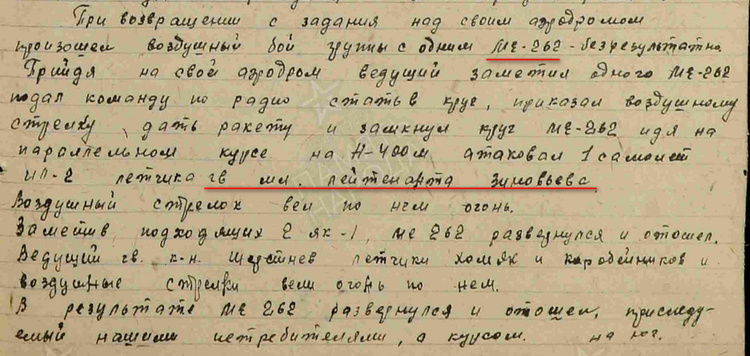 При возвращении с задания над своим аэродромом
произошел воздушный бой группы с одним МЕ-262 - безрезультатно.
Прийдя на свой аэродром ведущий заметил одного МЕ-262
подал команду по радио стать в круг, приказал воздушному
стрелку, дать ракету и замкнул круг МЕ-262 идя на
параллельном курсе на Н-400м атаковал 1 самолет
ИЛ-2 летчика гв мл. лейтенанта Зиновьева.
Воздушный стрелок вел по нем огонь.
Заметив подходящих 2 як-1, МЕ 262 развернулся и отошел.
Ведущий гв. к-н. Шерстнев летчики Хомяк и Коробейников и
воздушные стрелки вели огонь по нем.
В результате МЕ 262 развернулся и отошел, приследу-
емый нашими истребителями, а курсом. на юг.